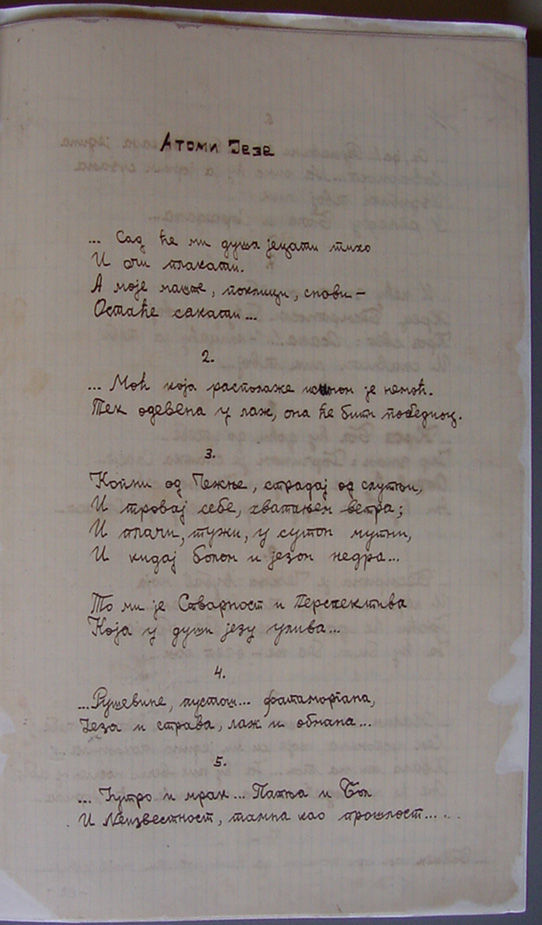 Атоми Језе
... Сад ће ми душа јецати тихо
И очи плакати.
А моје маште, поклици, снови –
Остаће сакати...
2.
... Моћ која располаже истином је немоћ.
Тек одевена у лаж, она ће бити победиоц.
3.
Копни од Чежње, страдај од слутњи,
И тровај себе, хватањем ветра;
И плачи, тужи, у сутон мутни,
И кидај болом и језом недра...
То ми је Стварност и Перспектива
Која у души језу улива...
4.
...Рушевине, пустош... фатаморгана,
Језа и страва, лаж и обмана...
5.
... Јутро и мрак... Патња и Бол
И Неизвестност, тамна као прошлост.....